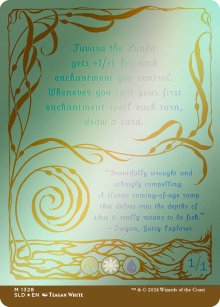 Tuvasa the Sunlit
gets +1/+1 for each
enchantment you control.
Whenever you cast your first
enchantment spell each turn,
draw a card.
"Beautifully wrought and
achingly compelling.
A classic coming-of-age romp
that delves into the depths of
what it really means to be fish."
—Tragan, Gutsy Explorer
1/1
M 1528
SLD ★ EN Teagan White
™ & © 2024 Wizards of the Coast